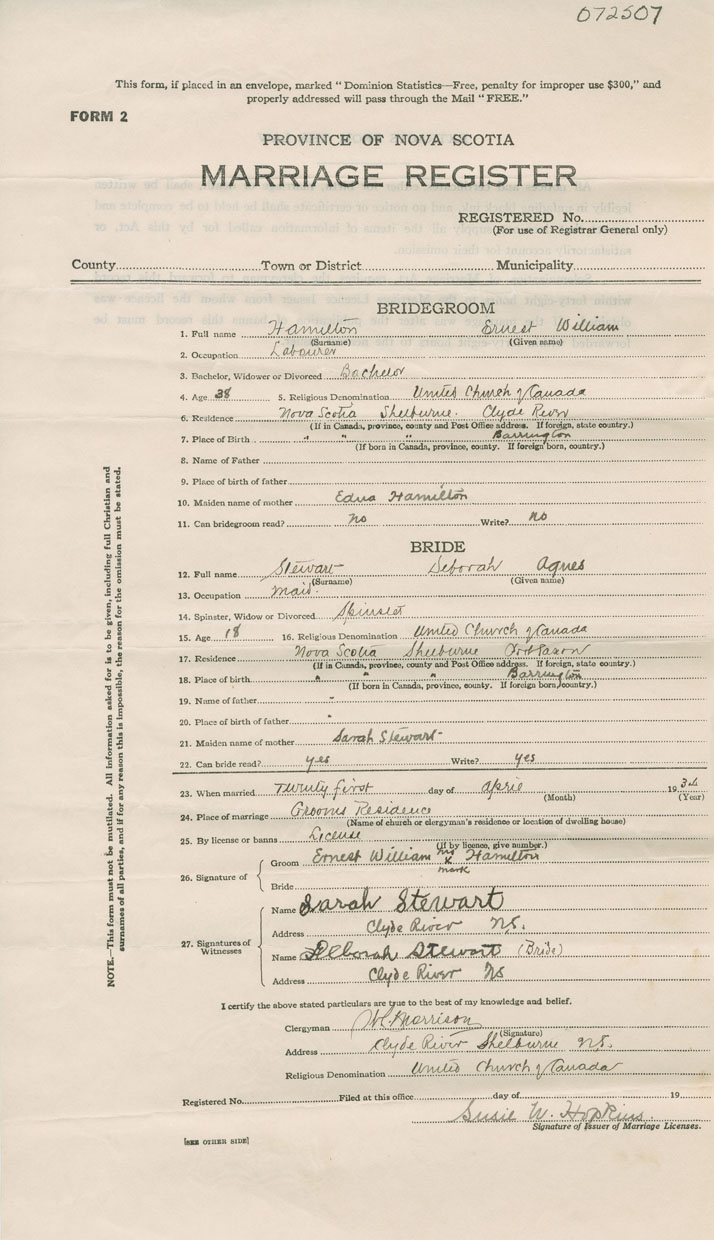 072507
This form, if placed in an envelope, marked “ Dominion Statistics—Free, penalty for improper use $300,” and
properly addressed will pass through the Mail “FREE.”
FORM 2
PROVINCE OF NOVA SCOTIA
MARRIAGE REGISTER
REGISTERED No.
(For use of Registrar General only)
County Town or District Municipality
BRIDEGROOM
1. Full name Hamilton Ernest William
(Surname) (Given name)
2. Occupation Labourer
3. Bachelor, Widower or Divorced Bachelor
4. Age 38 5. Religious Denomination United Church of Canada
6. Residence Nova Scotia Shelburne. Clyde River
(If in Canada, province, county and Post Office address. If foreign, state country.)
7. Place of Birth " " " Barrington
(If born in Canada, province, county. If foreign born, country.)
8. Name of Father
9. Place of birth of father
10. Maiden name of mother Edna Hamilton
11. Can bridegroom read? no Write? no
BRIDE
12. Full name Stewart Deborah Agnes
(Surname) (Given name)
13. Occupation Maid.
14. Spinster, Widow or Divorced Spinster
15. Age 18 16. Religious Denomination United Church of Canada
17. Residence Nova Scotia Shelburne
(If in Canada, province, county and Post Office address. If foreign, state country.)
18. Place of birth " " " Barrington
(If born in Canada, province, county. If foreign born, country.)
19. Name of father "
20. Place of birth of father "
21. Maiden name of mother Sarah Stewart
22. Can bride read? yes Write? yes
23. When married Twenty first day of April 1934
(Month) (Year)
24. Place of marriage Grooms Residence
(Name of church or clergyman's residence or location of dwelling house)
25. By license or banns License
(If by licence, give number.)
26. Signature of
Groom Ernest William his x mark Hamilton
Bride
27. Signatures of Witnesses
Name Sarah Stewart
Address Clyde River NS.
Name Deborah Stewart (Bride)
Address Clyde River NS
I certify the above stated particulars are true to the best of my knowledge and belief.
Clergyman Morrison
(Signature)
Address Clyde River Shelburne NS.
Religious Denomination United Church of Canada
Registered No. Filed at this office day of 19
Susie W. Hopkins.
Signature of Issuer of Marriage Licenses.
[SEE OTHER SIDE]
NOTE.—This form must not be mutilated. All information asked for is to be given, including full Christian and
surnames of all parties, and if for any reason this is impossible, the reason for the omission must be stated.